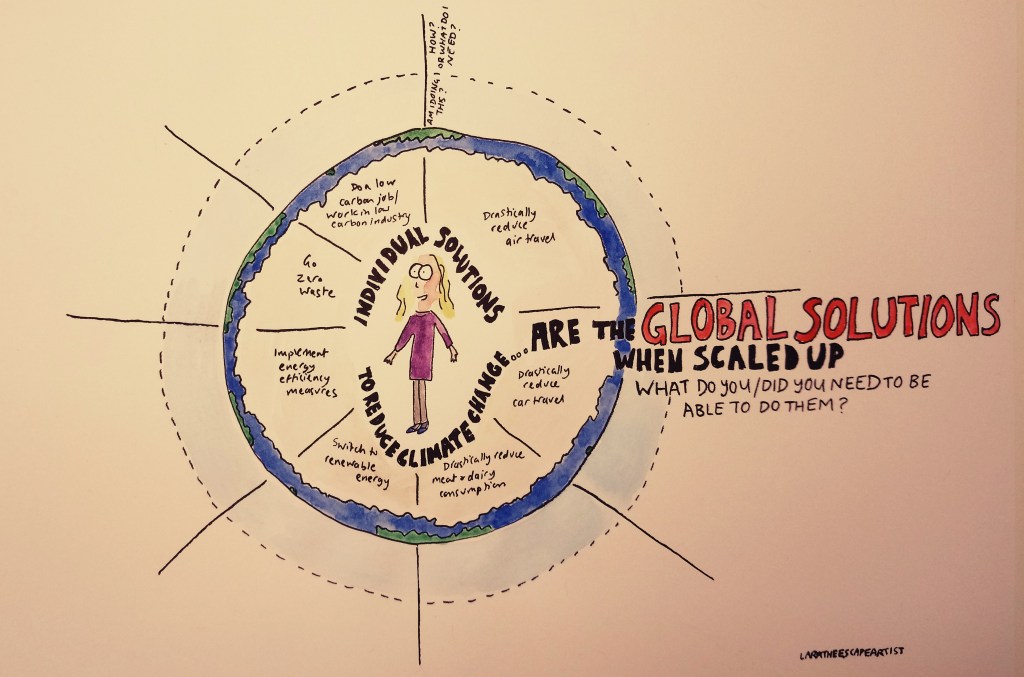 AM I DOING
THIS?
HOW?
OR WHAT DO I
NEED?
Do a low
carbon job/
work in low
carbon industry
Drastically
reduce
air travel
Go
Zero
waste
INDIVIDUAL SOLUTIONS
TO REDUCE CLIMATE CHANGE...
ARE THE GLOBAL SOLUTIONS
WHEN SCALED UP
WHAT DO YOU/DID YOU NEED TO BE
ABLE TO DO THEM?
Implement
energy
efficiency
measures
Drastically
reduce
car travel
Switch to
renewable
energy
Drastically reduce
meat & dairy
consumption
LARATHEESCAPEARTIST